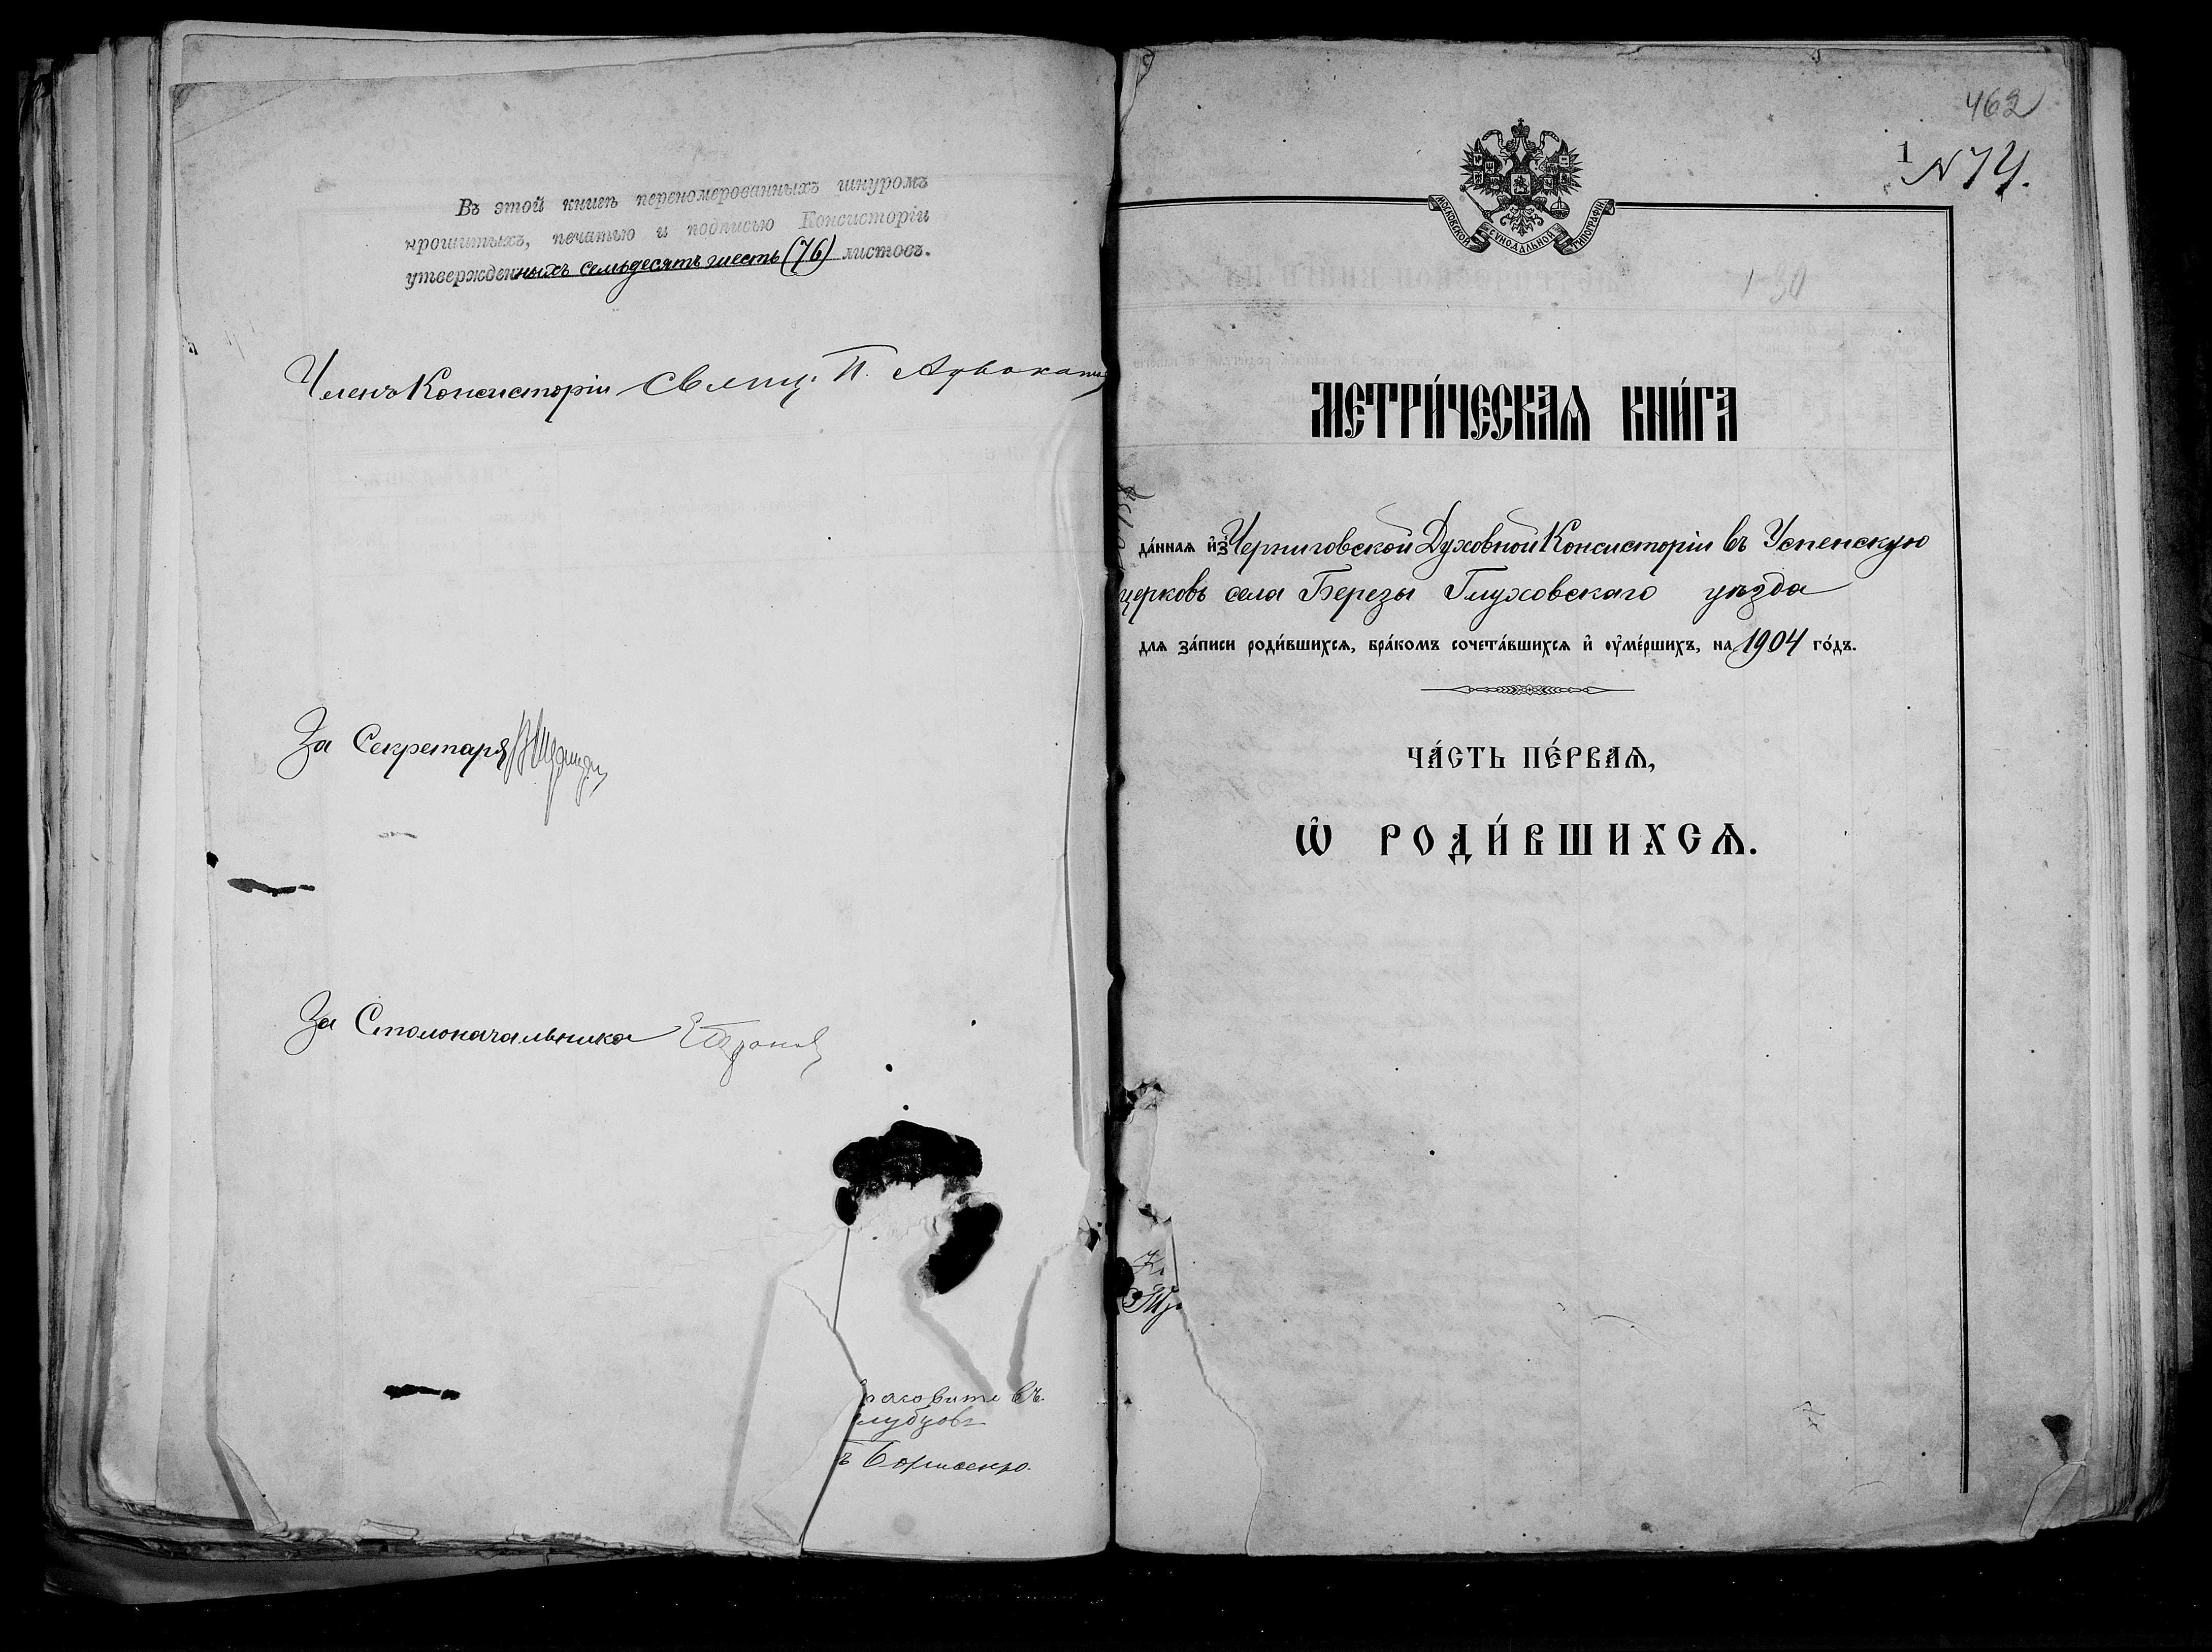 Въ этой книгѣ перенумерованныхъ шнуромъ
прошитыхъ, печатью и подписью Консисторіи
утвержденныхъ семьдесятъ шесть (76) листовъ.
Членъ Консисторіи Священ. П.
За Секретаря
За Столоначальника
462
1
N 74.
МОСКОВСКОЙ СѴНОДАЛЬНОЙ ТИПОГРАФІИ
1-30
МЕТРИ́ЧЕСКАѦ КНИ́ГА
да́ннаѧ и҆з̾ Черниговской Духовной Консисторіи въ Успенскую
церковь села Березы Глуховскаго уѣзда
длѧ за́писи роди́вшихсѧ, бра́комъ сочета́вшихсѧ и҆ ᲂу҆ме́ршихъ, на 1904 го́дъ.
ЧА́СТЬ ПЕ́РВАѦ,
Ѡ҆ РОДИ́ВШИХСѦ.